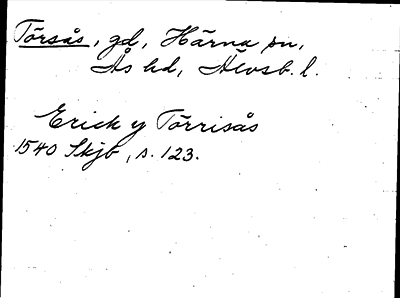 Törsås, gd, Härna sn,
Ås hd, Älvsb. l.
Erick y Törrisås
1540 Skjb, s. 123.